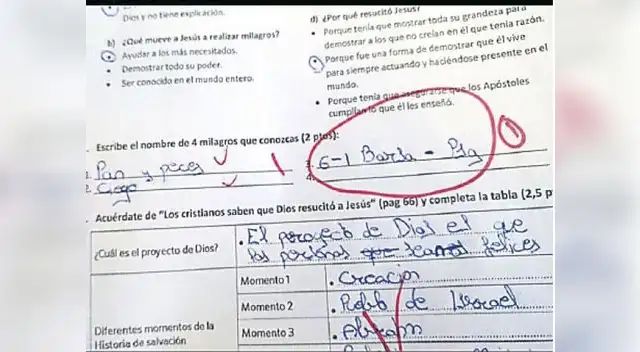 Dios y no tiene explicación.
b) ¿Qué mueve a Jesús a realizar milagros?
Ayudar a los más necesitados.
• Demostrar todo su poder.
• Ser conocido en el mundo entero.
d) ¿Por qué resucitó Jesús?
• Porque tenía que mostrar toda su grandeza para
demostrar a los que no creían en él que tenía razón.
Porque fue una forma de demostrar que él vive
para siempre actuando y haciéndose presente en el
mundo.
• Porque tenía que asegurarse que los Apóstoles
cumplían lo que él les enseñó.
Escribe el nombre de 4 milagros que conozcas (2 ptos):
1. Pan y peces
2. Ciego
3. 6-1 Barsa - Psg
4.
1
. Acuérdate de "Los cristianos saben que Dios resucitó a Jesús" (pag 66) y completa la tabla (2,5 p
¿Cuál es el proyecto de Dios?
• El proyecto de Dios el que
las personas seamos felices
Momento 1
• Creacion
Momento 2
• Pueblo de Israel
Diferentes momentos de la
Historia de salvación
Momento 3
• Abraham